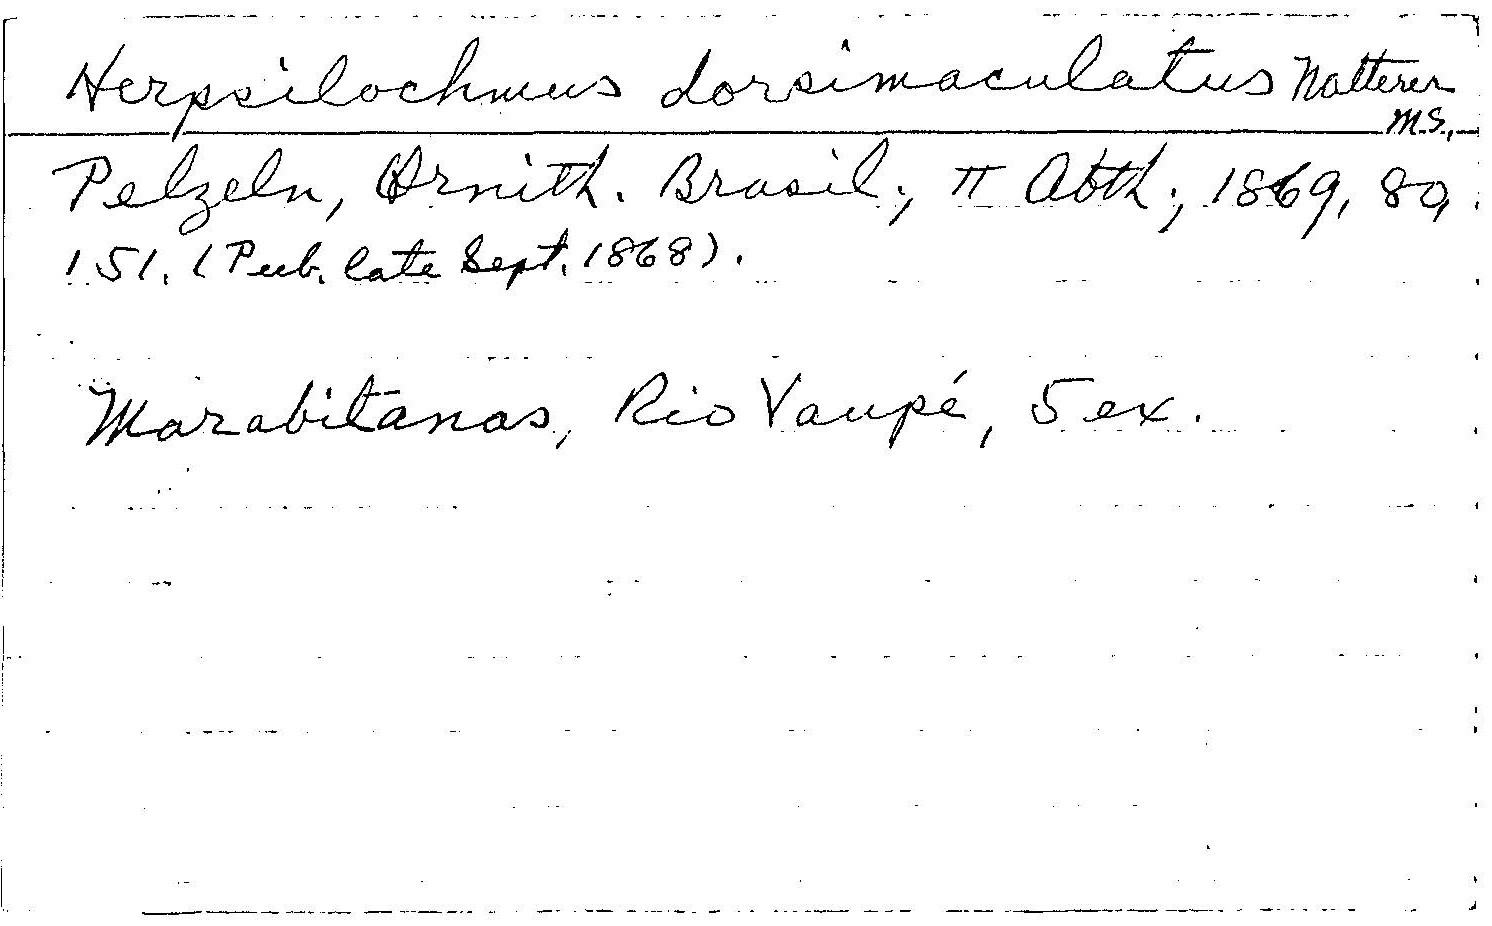 Herpsilochmus dorsimaculatus Natterer
M.S.,
Pelzeln, Ornith. Brasil., II Abth., 1869, 80,
151. (Pub. late Sept. 1868).
Marabitanas, Rio Vaupé, 5 ex.